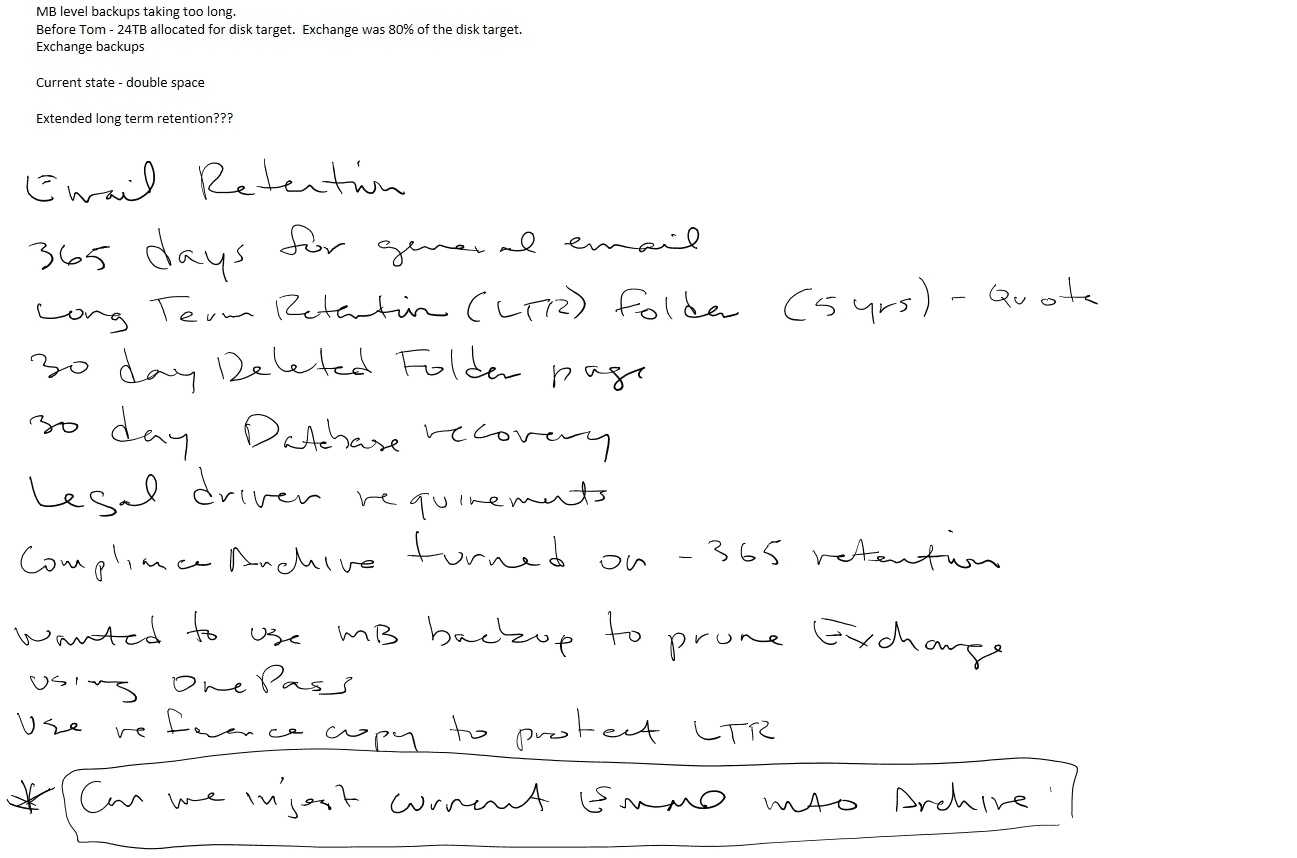 MB level backups taking too long.
Before Tom - 24TB allocated for disk target.  Exchange was 80% of the disk target.
Exchange backups
Current state - double space
Extended long term retention???
Email Retention
365 days for general email
Long Term Retention (LTR) Folder (5 yrs) - Quota
30 day Deleted Folder page
30 day Database recovery
Legal driven requirements
Compliance Archive turned on - 365 retention
Wanted to use MB backup to prune Exchange
using OnePass
Use reference copy to protect LTR
* Can we injest current into Archive